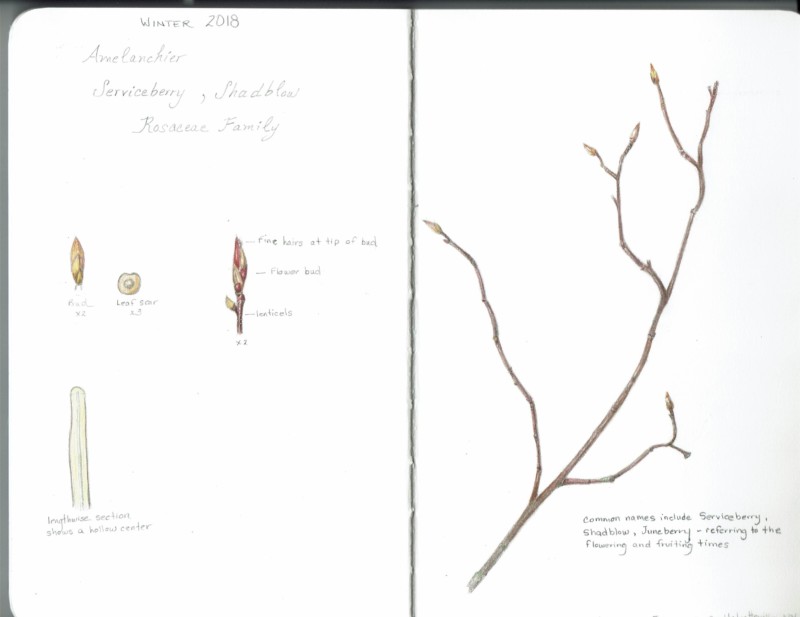 WINTER 2018
Amelanchier
Serviceberry, Shadblow
Rosaceae Family
Fine hairs at tip of bud
Flower bud
lenticels
x2
Bud
x2
Leaf scar
x3
lengthwise section
shows a hollow center
Common names include Serviceberry,
Shadblow, Juneberry - referring to the
flowering and fruiting times